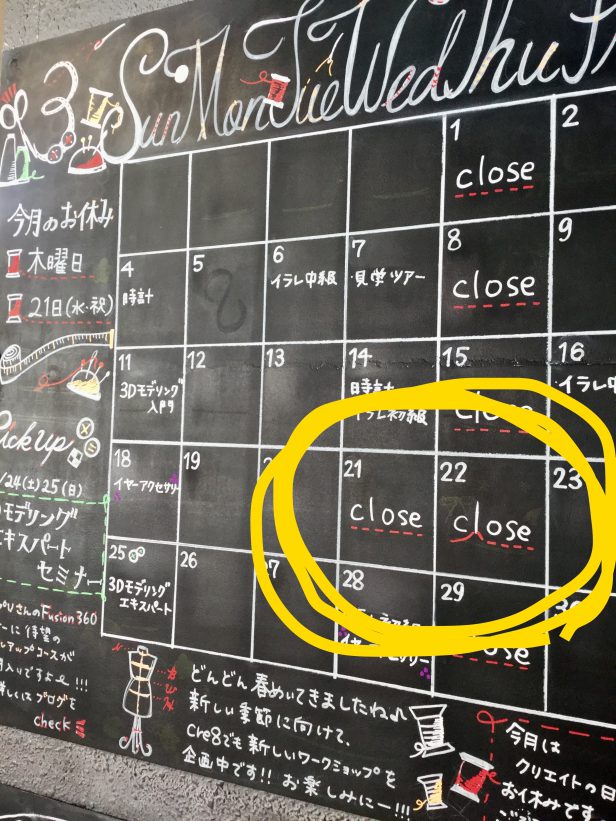 3
Sun Mon Tue Wed Thu
1 2
close
今月のお休み
木曜日
21日(水・祝)
4 5 6 7 8 9
時計
イラレ中級
見学ツアー
close
11 12 13 14 15 16
3Dモデリング
入門
時計
イラレ初級
close
イラレ中
Pick up
/24(土)25(日)
モデリング
エキスパート
セミナー
18 19 21 22 23
イヤーアクセサリー
close
close
25 26 28 29
3Dモデリング
エキスパート
close
さんのFusion360
に待望の
アップコースが
ブログを
check
どんどん春めいてきましたね
新しい季節に向けて、
cre8でも新しいワークショップを
企画中です!! お楽しみにー!!!
今月は
クリエイトの日
お休みです